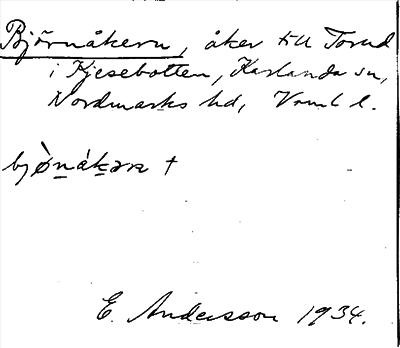 Björnåkern, åker till Torud
i Kjesebotten, Karlanda sn,
Nordmarks hd, Vrml l.
bjø̀nåkæn †
E. Andersson 1934.